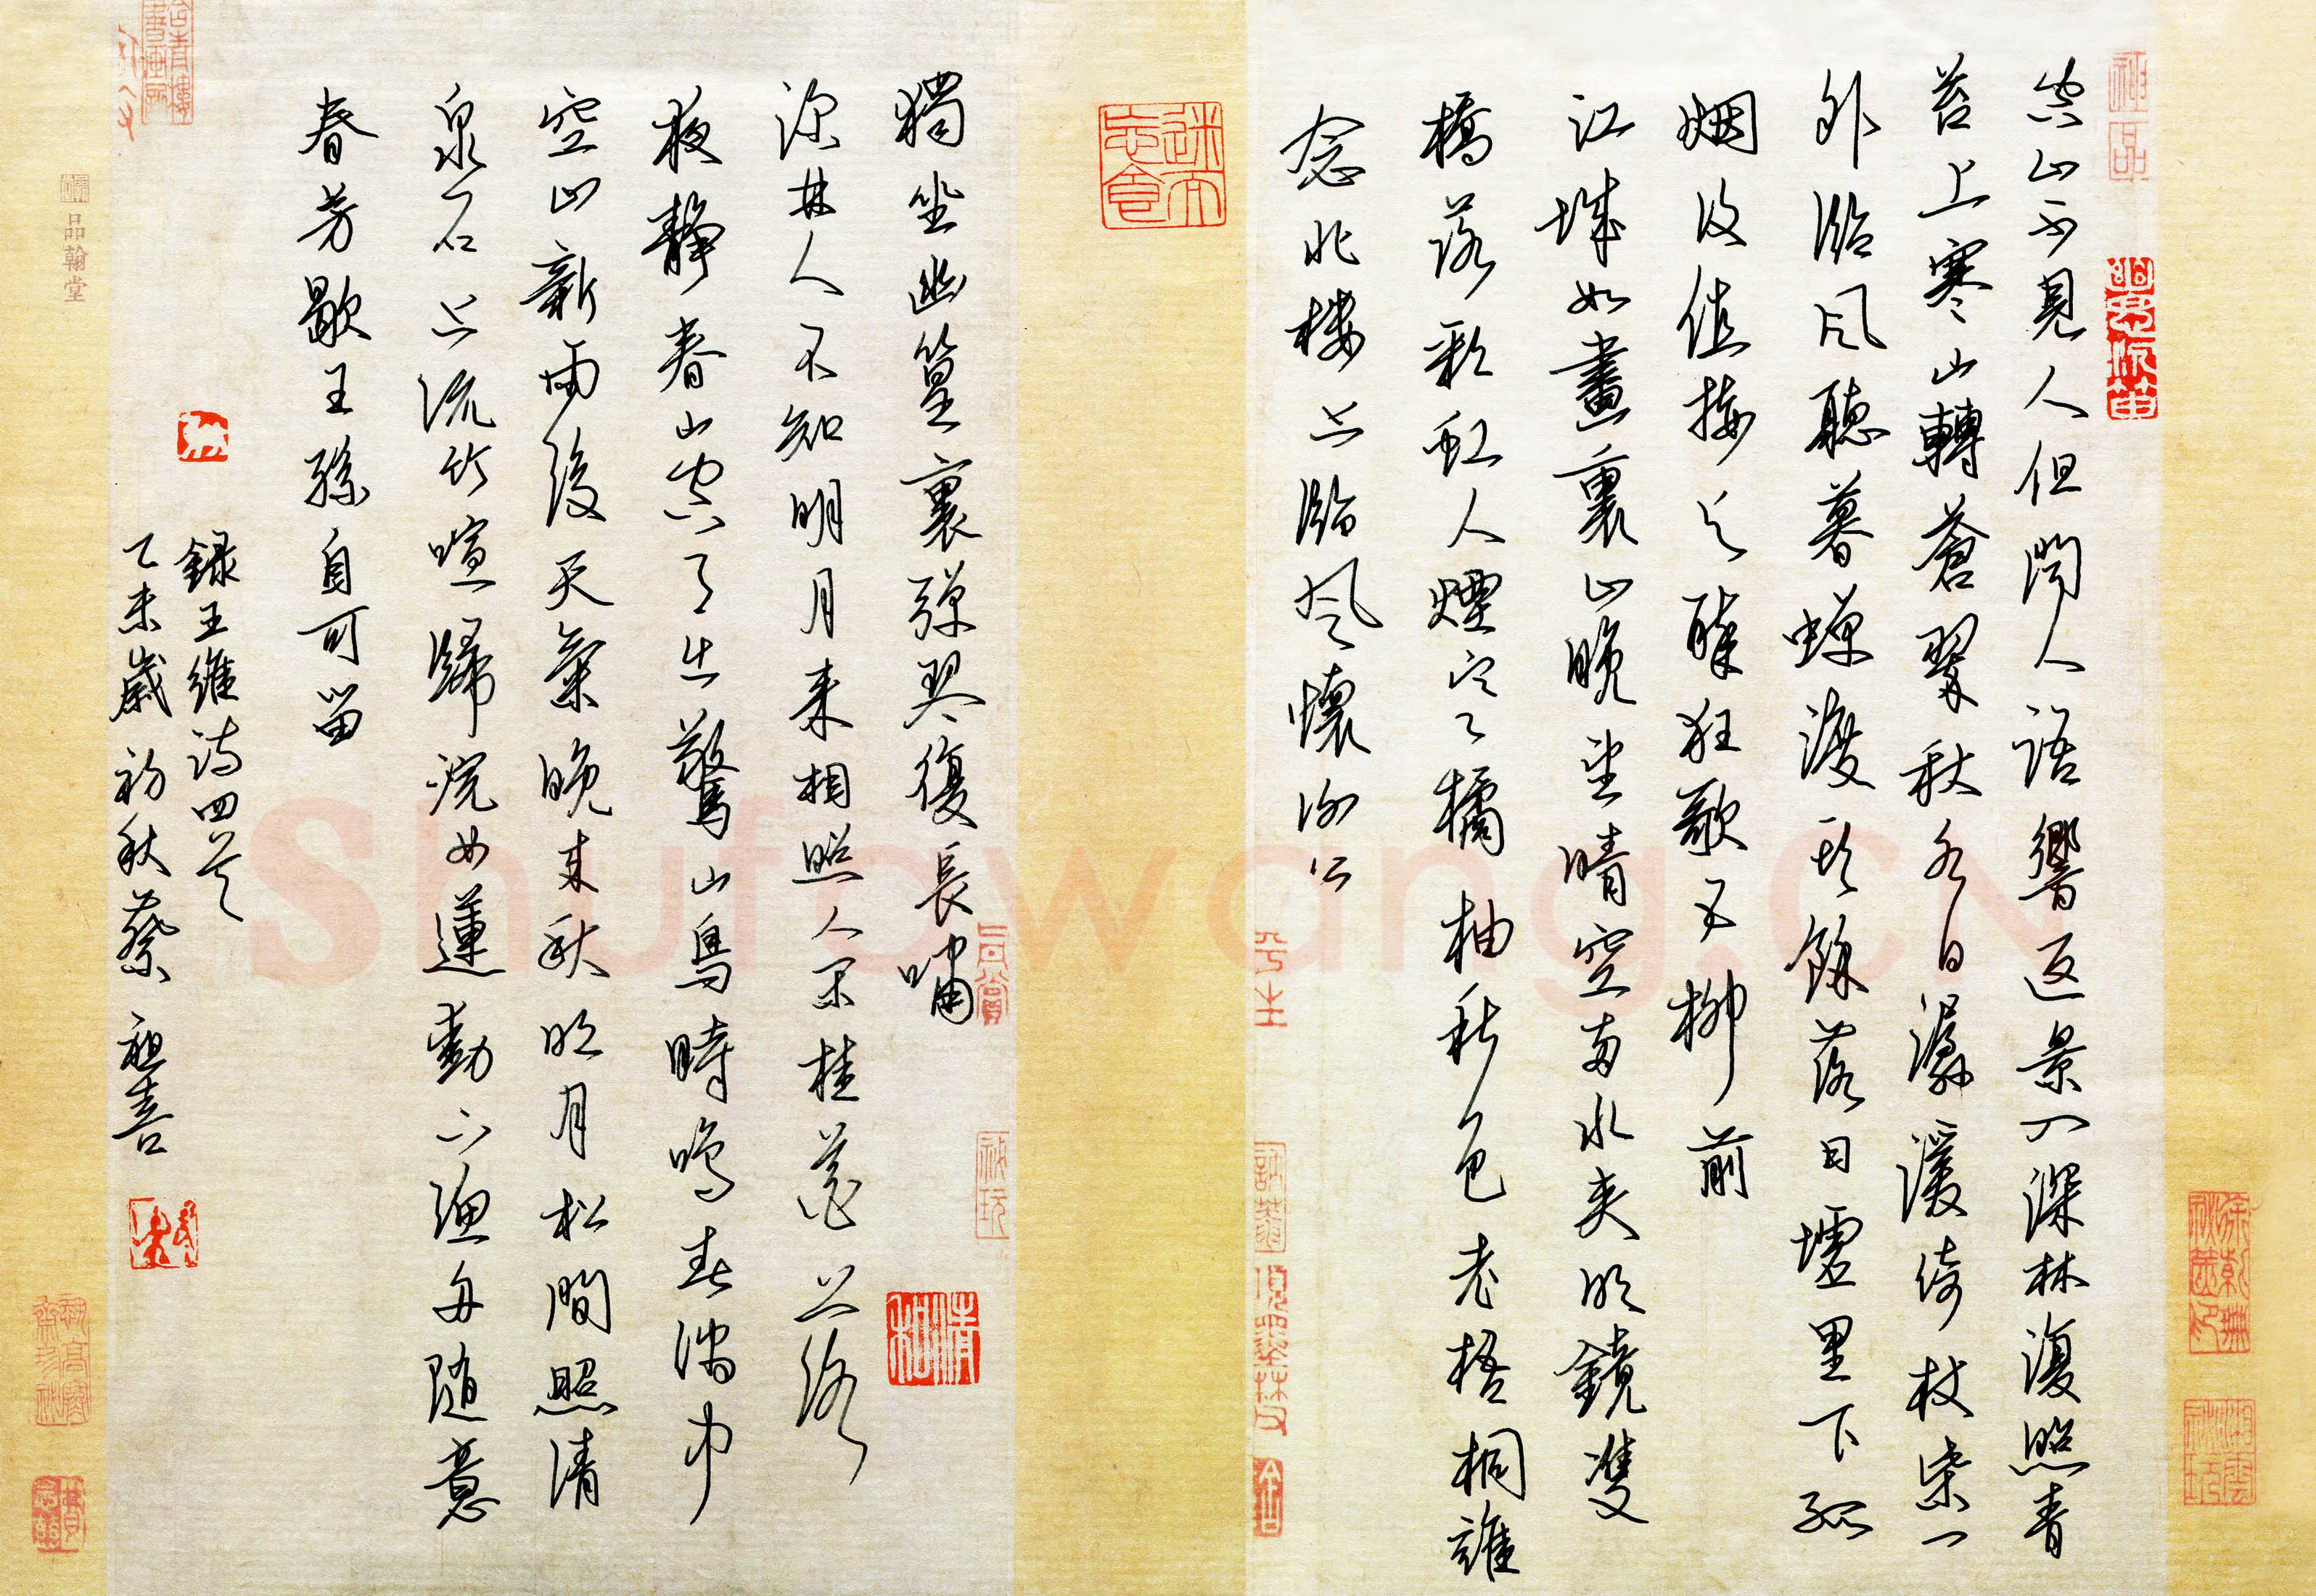 神品
空山不見人但聞人語響返景入深林復照青
苔上寒山轉蒼翠秋水日潺湲倚杖柴門
外臨風聽暮蟬渡頭餘落日墟里下孤
烟復值接輿醉狂歌五柳前
江城如畫裏山晚望晴空兩水夾明鏡雙
橋落彩虹人煙寒橘柚秋色老梧桐誰
念北樓上臨風懷謝公
獨坐幽篁裏彈琴復長嘯
深林人不知明月來相照人閑桂花落
夜靜春山空月出驚山鳥時鳴春澗中
空山新雨後天氣晚來秋明月松間照清
泉石上流竹喧歸浣女蓮動下漁舟隨意
春芳歇王孫自可留
錄王維詩四首
乙未歲初秋蔡祖喜
品翰堂
Shufawang.CN